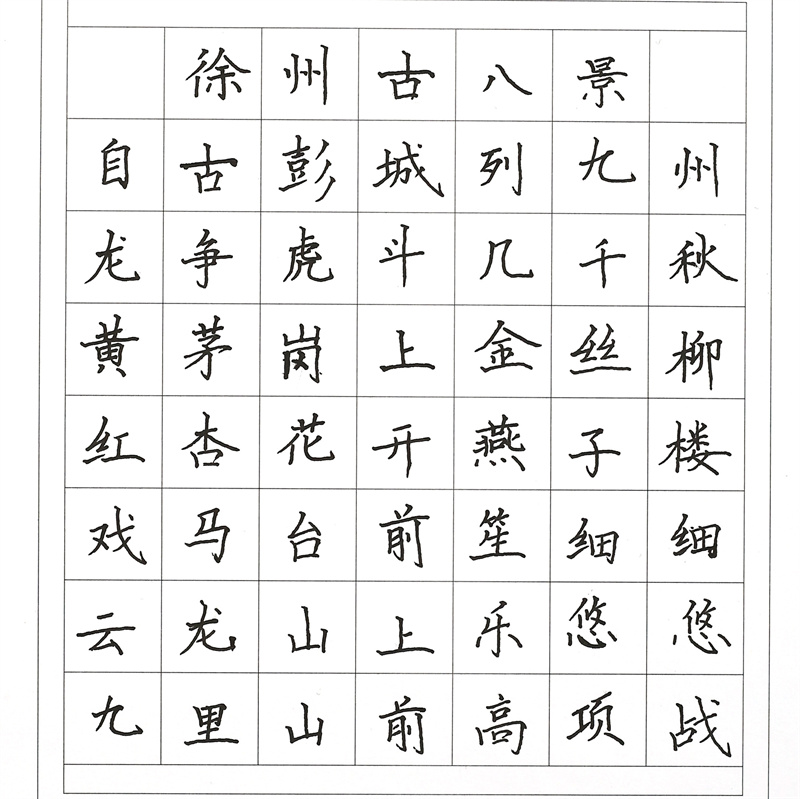 徐州古八景
自古彭城列九州
龙争虎斗几千秋
黄茅岗上金丝柳
红杏花开燕子楼
戏马台前笙细细
云龙山上乐悠悠
九里山前高项战